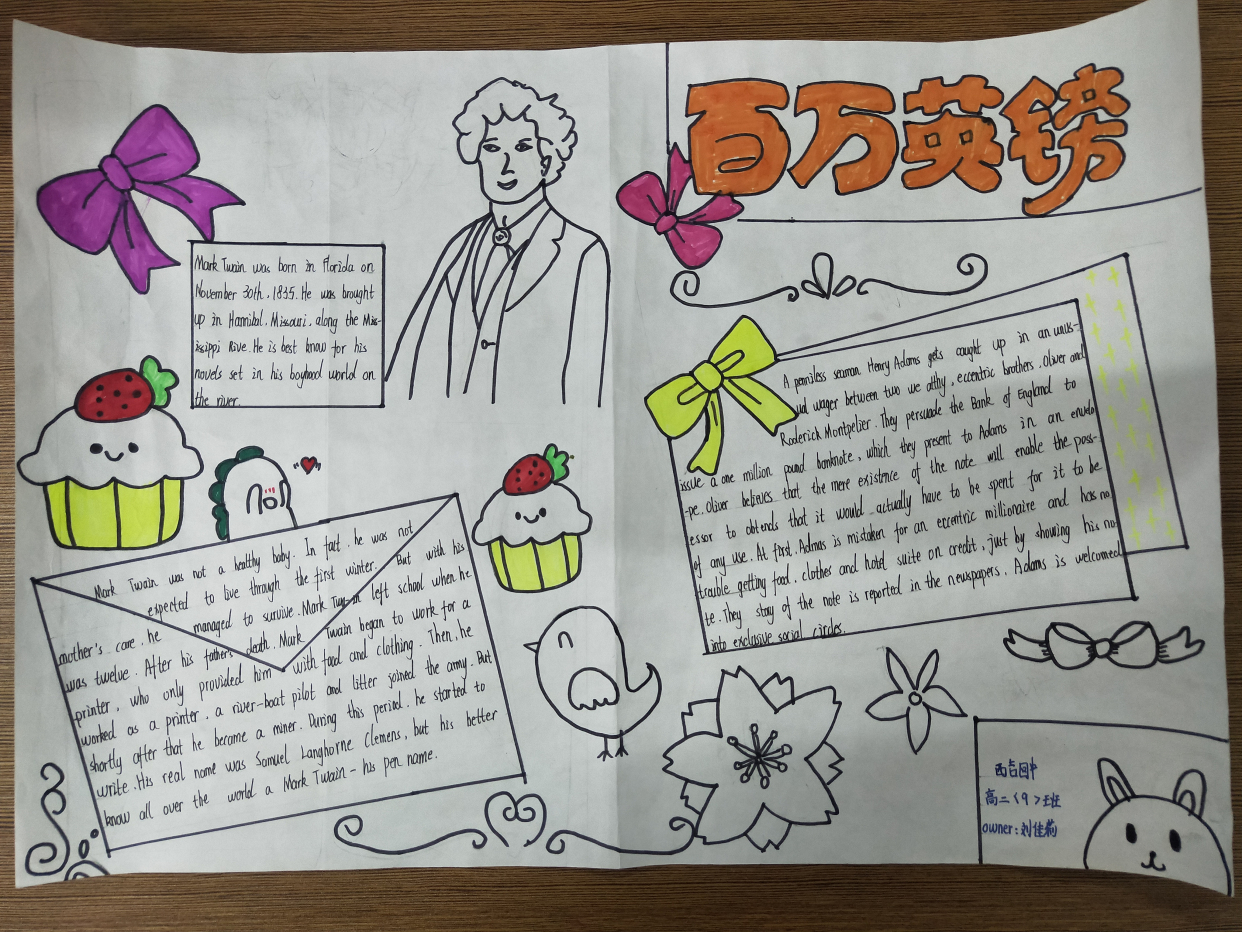 百万英镑
Mark Twain was born in Florida on
November 30th, 1835. He was brought
up in Hannibal, Missouri, along the Miss-
issippi Rive. He is best know for his
novels set in his boyhood world on
the river.
A penniless seaman Henry Adams gets caught up in an unus-
ual wager between two we althy, eccentric brothers, Oliver and
Roderick Montpelier. They persuade the Bank of England to
issue a one million pound banknote, which they present to Adams in an envelo
-pe. Oliver believes that the mere existence of the note will enable the poss-
essor to obtends that it would actually have to be spent for it to be
of any use. At first, Admas is mistaken for an eccentric millionaire and has no
trouble getting food, clothes and hotel suite on credit, just by showing his no-
te. They stoy of the note is reported in the newspapers. Adams is welcomed
into exclusive social circles.
Mark Twain was not a healthy baby. In fact, he was not
expected to live through the first winter. But with his
mother's care, he managed to survive. Mark Twain left school when he
was twelve. After his father's death, Mark Twain began to work for a
printer, who only provided him with food and clothing. Then, he
worked as a printer, a river-boat pilot and litter joined the army. But
shortly after that he became a miner. During this period, he started to
write. His real name was Samuel Langhorne Clemens, but his better
know all over the world a Mark Twain - his pen name.
西吉回中
高二<9>班
owner:刘佳莉